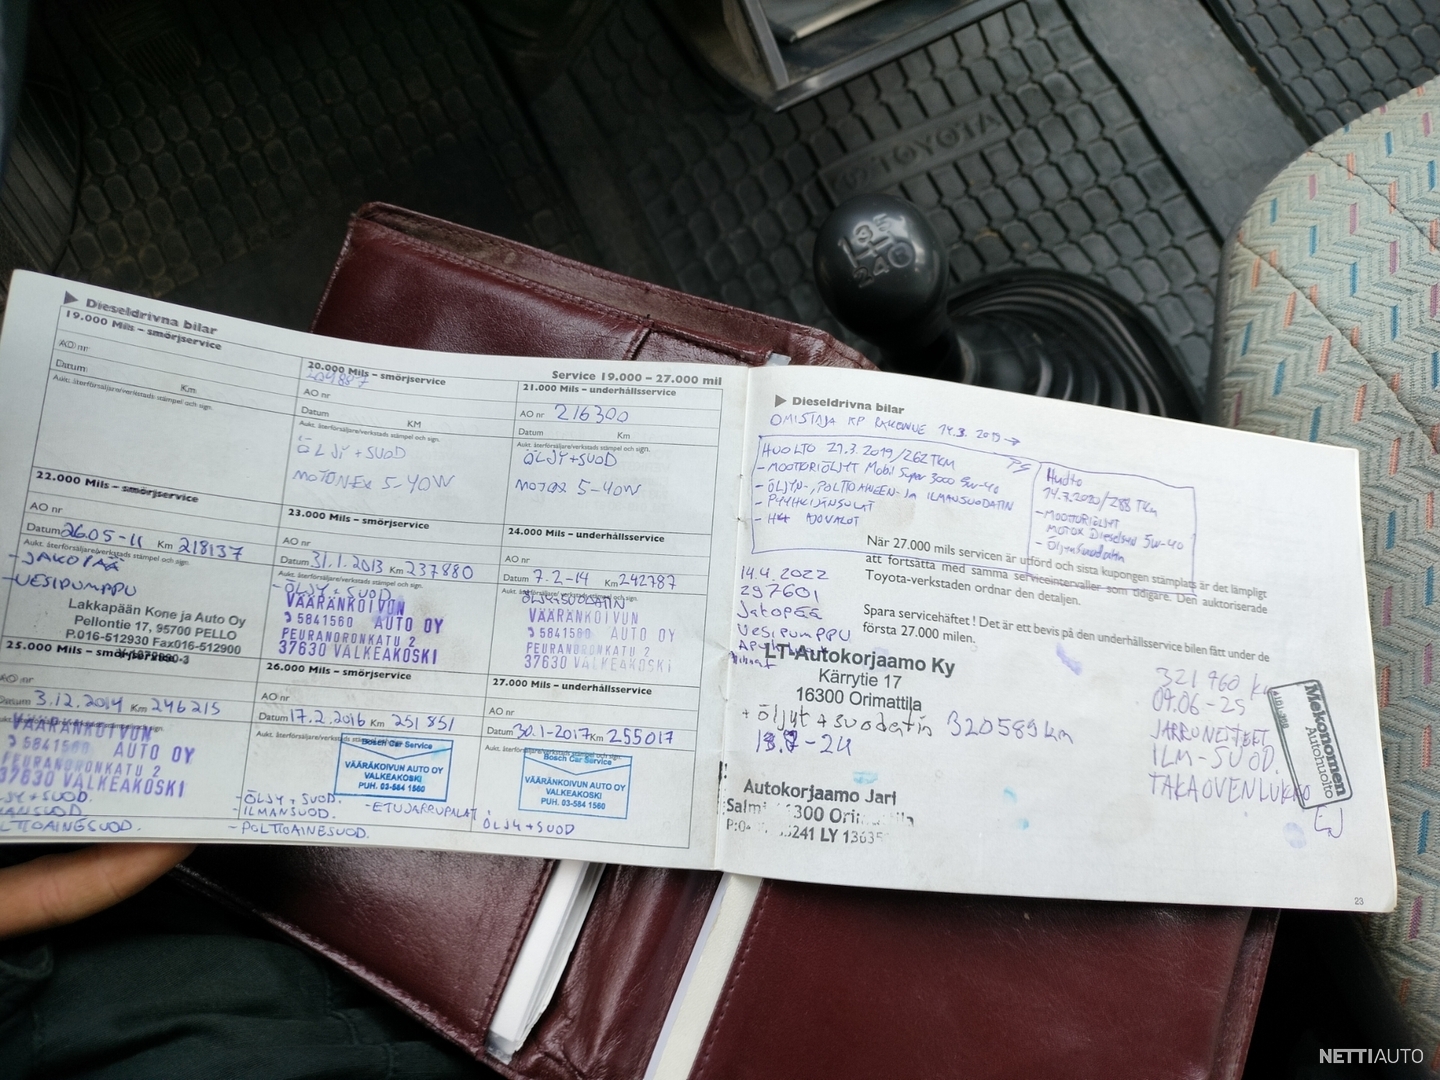 TOYOTA
Dieseldrivna bilar
Service 19.000 – 27.000 mil
19.000 Mils – smörjservice
AO nr
Datum
Km
Aukt. återförsäljare/verkstads stämpel och sign.
20.000 Mils – smörjservice
AO nr
Datum KM
Aukt. återförsäljare/verkstads stämpel och sign.
ÖLJY + SUOD
MOTONEX 5-40W
21.000 Mils – underhållsservice
AO nr 216300
Datum Km
Aukt. återförsäljare/verkstads stämpel och sign.
ÖLJY + SUOD
MOTOX 5-40W
22.000 Mils – smörjservice
AO nr
Datum 26.05-11 Km 218137
Aukt. återförsäljare/verkstads stämpel och sign.
- JAKOPÄÄ
- VESIPUMPPU
Lakkapään Kone ja Auto Oy
Pellontie 17, 95700 PELLO
P.016-512930 Fax016-512900
23.000 Mils – smörjservice
AO nr
Datum 31.1.2013 Km 237880
Aukt. återförsäljare/verkstads stämpel och sign.
- ÖLJY + SUOD.
VÄÄRÄNKOIVUN
5841560 AUTO OY
PEURANORONKATU 2
37630 VALKEAKOSKI
24.000 Mils – underhållsservice
AO nr
Datum 7-2-14 Km 242787
Aukt. återförsäljare/verkstads stämpel och sign.
VÄÄRÄNKOIVUN
5841560 AUTO OY
PEURANORONKATU 2
37630 VALKEAKOSKI
25.000 Mils – smörjservice
AO nr
Datum 3.12.2014 Km 246215
VÄÄRÄNKOIVUN
5841560 AUTO OY
PEURANORONKATU 2
37630 VALKEAKOSKI
26.000 Mils – smörjservice
AO nr
Datum 17.2.2016 Km 251851
Aukt. återförsäljare/verkstads stämpel och sign.
Bosch Car Service
VÄÄRÄNKOIVUN AUTO OY
VALKEAKOSKI
PUH. 03-584 1560
- ÖLJY + SUOD.
- ILMANSUOD.
- POLTTOAINESUOD.
- ETUJARRUPALAT
27.000 Mils – underhållsservice
AO nr
Datum 30.1-2017 Km 255017
Aukt. återförsäljare/verkstads stämpel och sign.
Bosch Car Service
VÄÄRÄNKOIVUN AUTO OY
VALKEAKOSKI
PUH. 03-584 1560
ÖLJY + SUOD
Dieseldrivna bilar
OMISTAJA KP RAKONUE 14.3.2019 →
HUOLTO 27.3.2019/262TKM
- MOOTTORIÖLJYT Mobil Super 3000 5w-40
- ÖLJYN-, POLTTOAINEEN- JA ILMANSUODATIN
- PYYHKIJÄNSULAT
- AJOVALOT
Huolto
14.7.2020/288 TKm
- MOOTTORIÖLJYT
MOTOX Dieselsed 5w-40
- Öljynsuodatin
När 27.000 mils servicen är utförd och sista kupongen stämplats är det lämpligt
att fortsätta med samma serviceintervaller som tidigare. Den auktoriserade
Toyota-verkstaden ordnar den detaljen.
Spara servicehäftet ! Det är ett bevis på den underhållsservice bilen fått under de
första 27.000 milen.
14.4.2022
297601
Jakopää
Vesipumppu
LT-Autokorjaamo Ky
Kärrytie 17
16300 Orimattila
+ öljyt + suodatin 320589km
-24
Autokorjaamo Jari
321 960 km
09.06-25
JARRUNESTEET
ILM-SUOD.
TAKAOVENLUKKO
Mekonomen
Autohuolto
23
NETTIAUTO